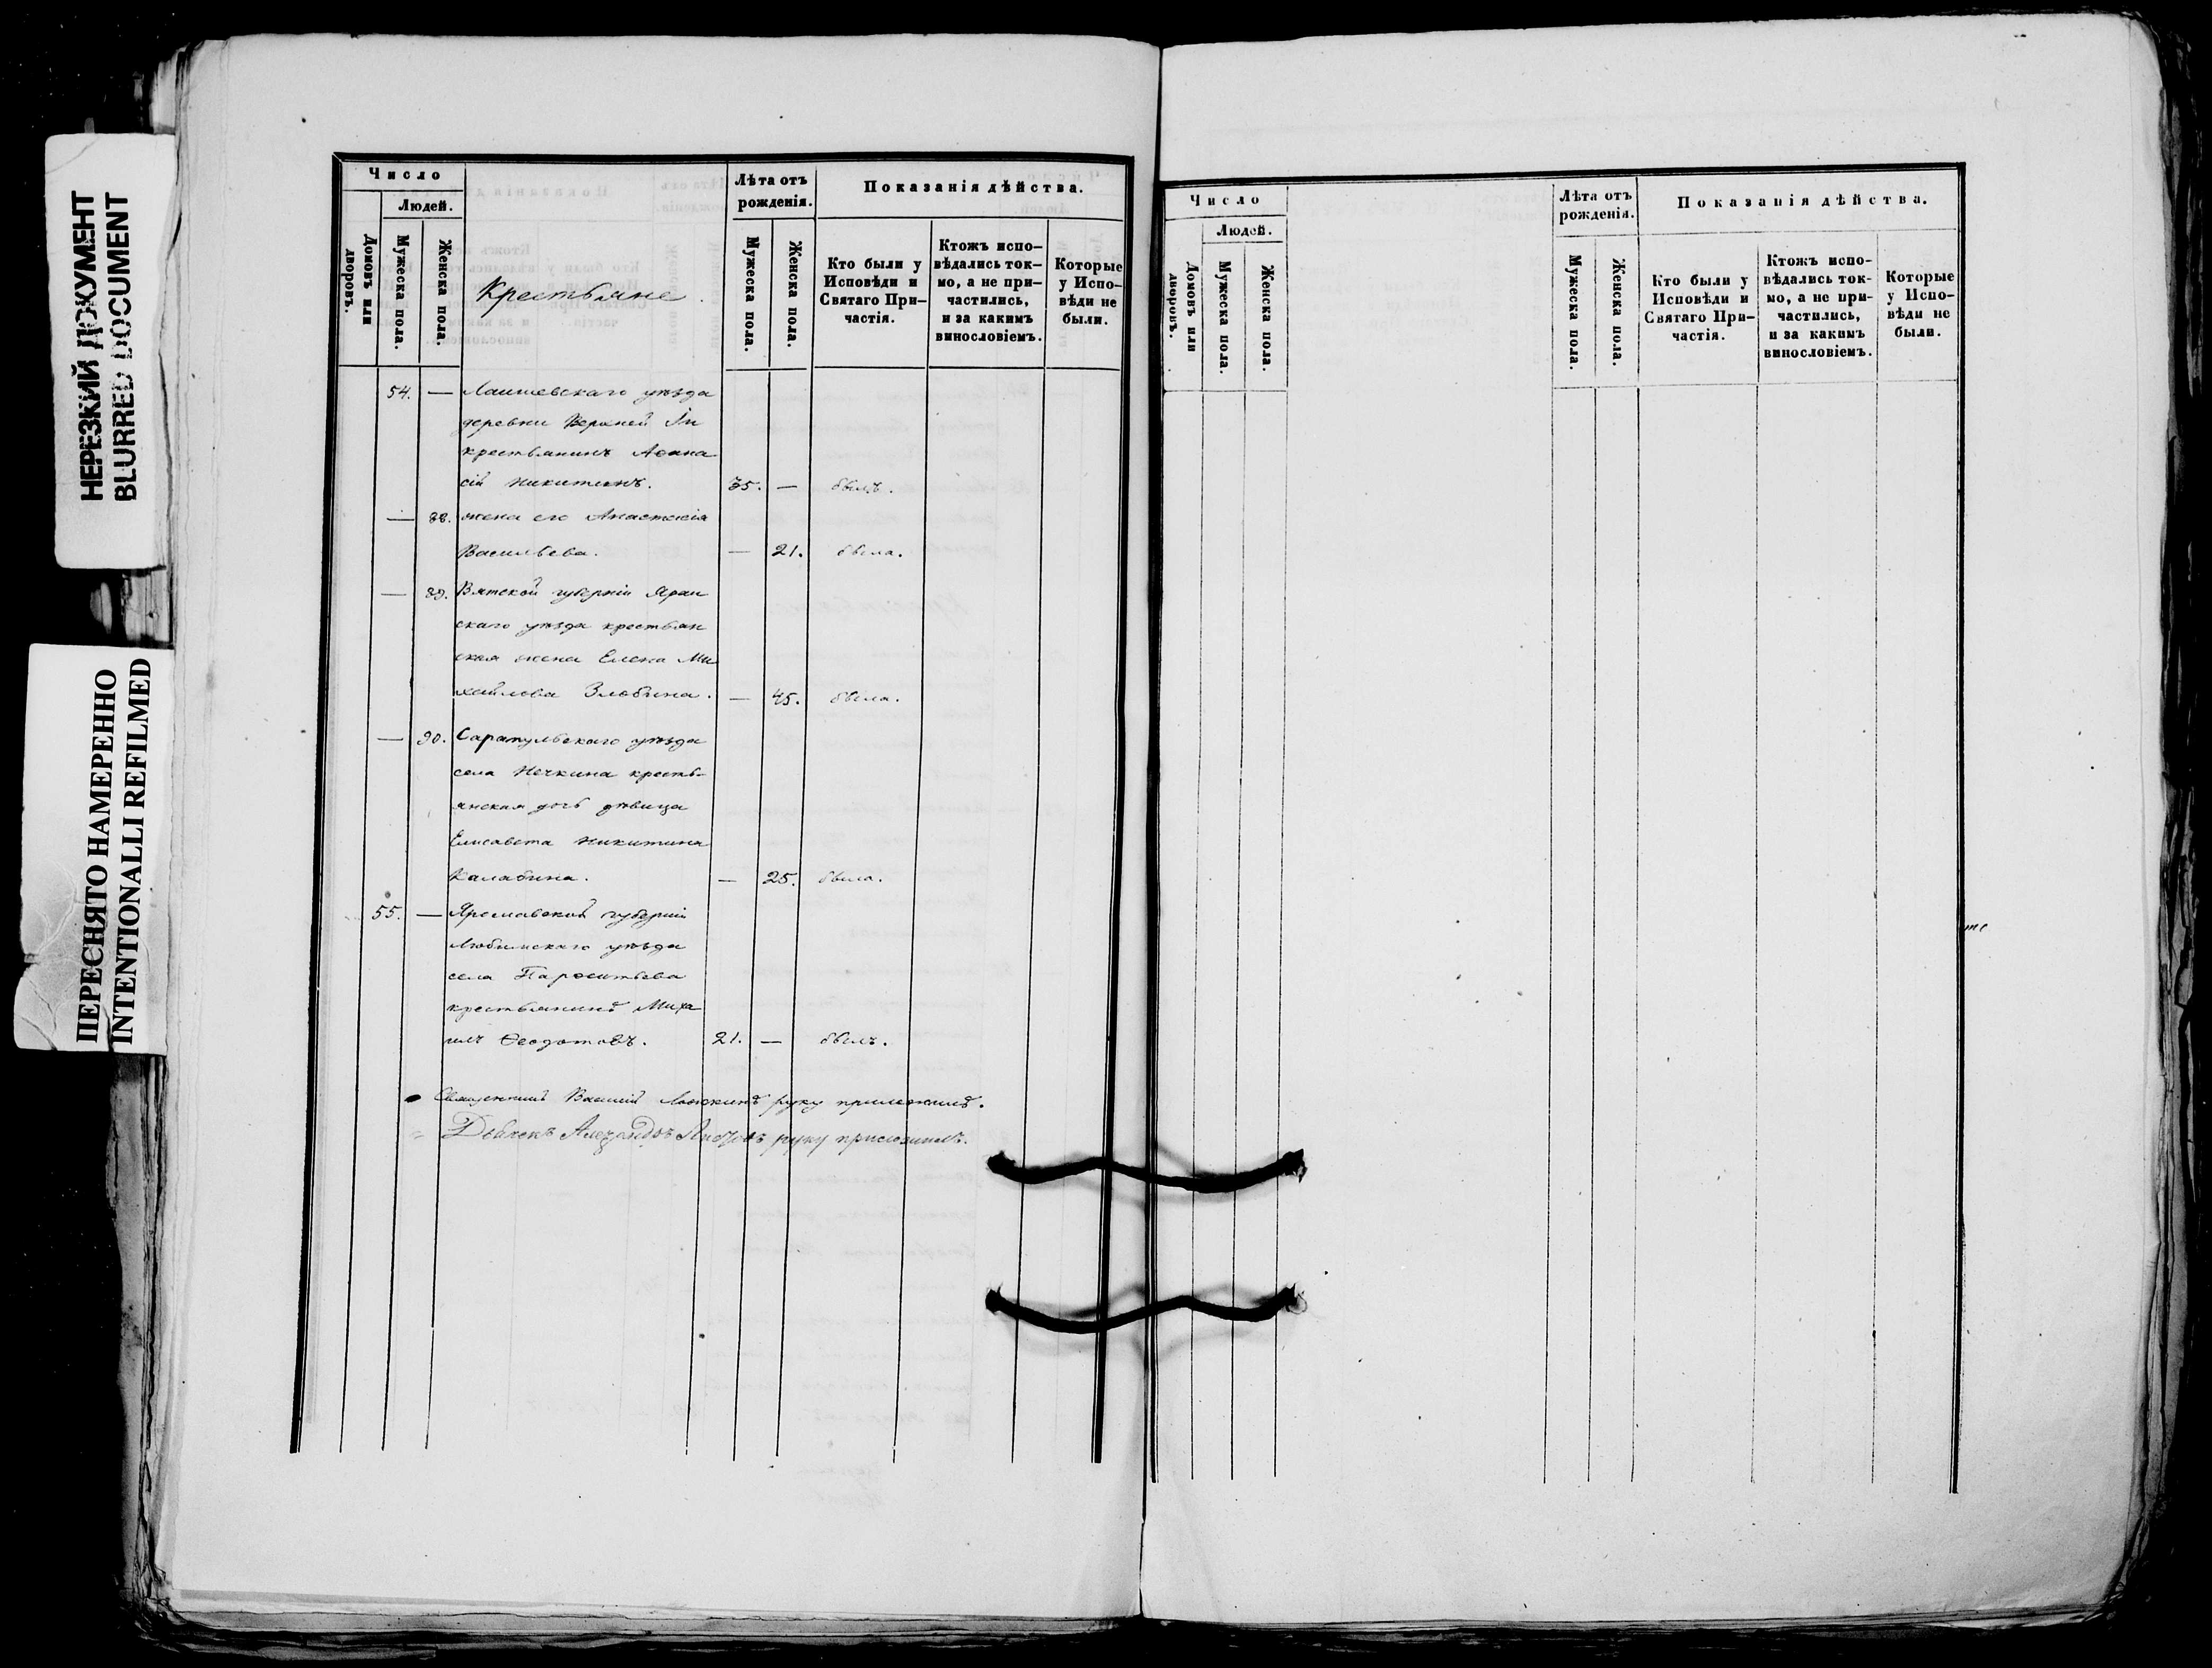 НЕРЕЗКИЙ ДОКУМЕНТ
BLURRED DOCUMENT
ПЕРЕСНЯТО НАМЕРЕННО
INTENTIONALLI REFILMED
Число
Людей.
Домовъ или дворовъ.
Мужеска пола.
Женска пола.
Крестьяне.
Лѣта отъ рожденія.
Мужеска пола.
Женска пола.
Показанія дѣйства.
Кто были у Исповѣди и Святаго При-частія.
Ктожъ испо-вѣдались ток-мо, а не при-частились, и за какимъ винословіемъ.
Которые у Испо-вѣди не были.
54. — Лаишевскаго уѣзда
деревни Верхней
крестьянинъ Аѳана
сій Никитинъ. 35. — былъ.
— 88. жена его Анастасія
Васильева. — 21. была.
— 89. Вятской губерніи Яран
скаго уѣзда крестьян
ская жена Елена Ми
хайлова Злобина. — 45. была.
— 90. Сарапульскаго уѣзда
села Нечкина кресть-
янская дочь дѣвица
Елисавета Никитина
Калабина. — 25. была.
55. — Ярославской губерніи
Любимскаго уѣзда
села
крестьянинъ Миха
илъ Ѳеодотовъ. 21. — былъ.
Священникъ Василій руку приложилъ.
Дьячекъ Александръ руку приложилъ.
Число
Людей.
Домовъ или дворовъ.
Мужеска пола.
Женска пола.
Лѣта отъ рожденія.
Мужеска пола.
Женска пола.
Показанія дѣйства.
Кто были у Исповѣди и Святаго При-частія.
Ктожъ испо-вѣдались ток-мо, а не при-частились, и за какимъ винословіемъ.
Которые у Испо-вѣди не были.